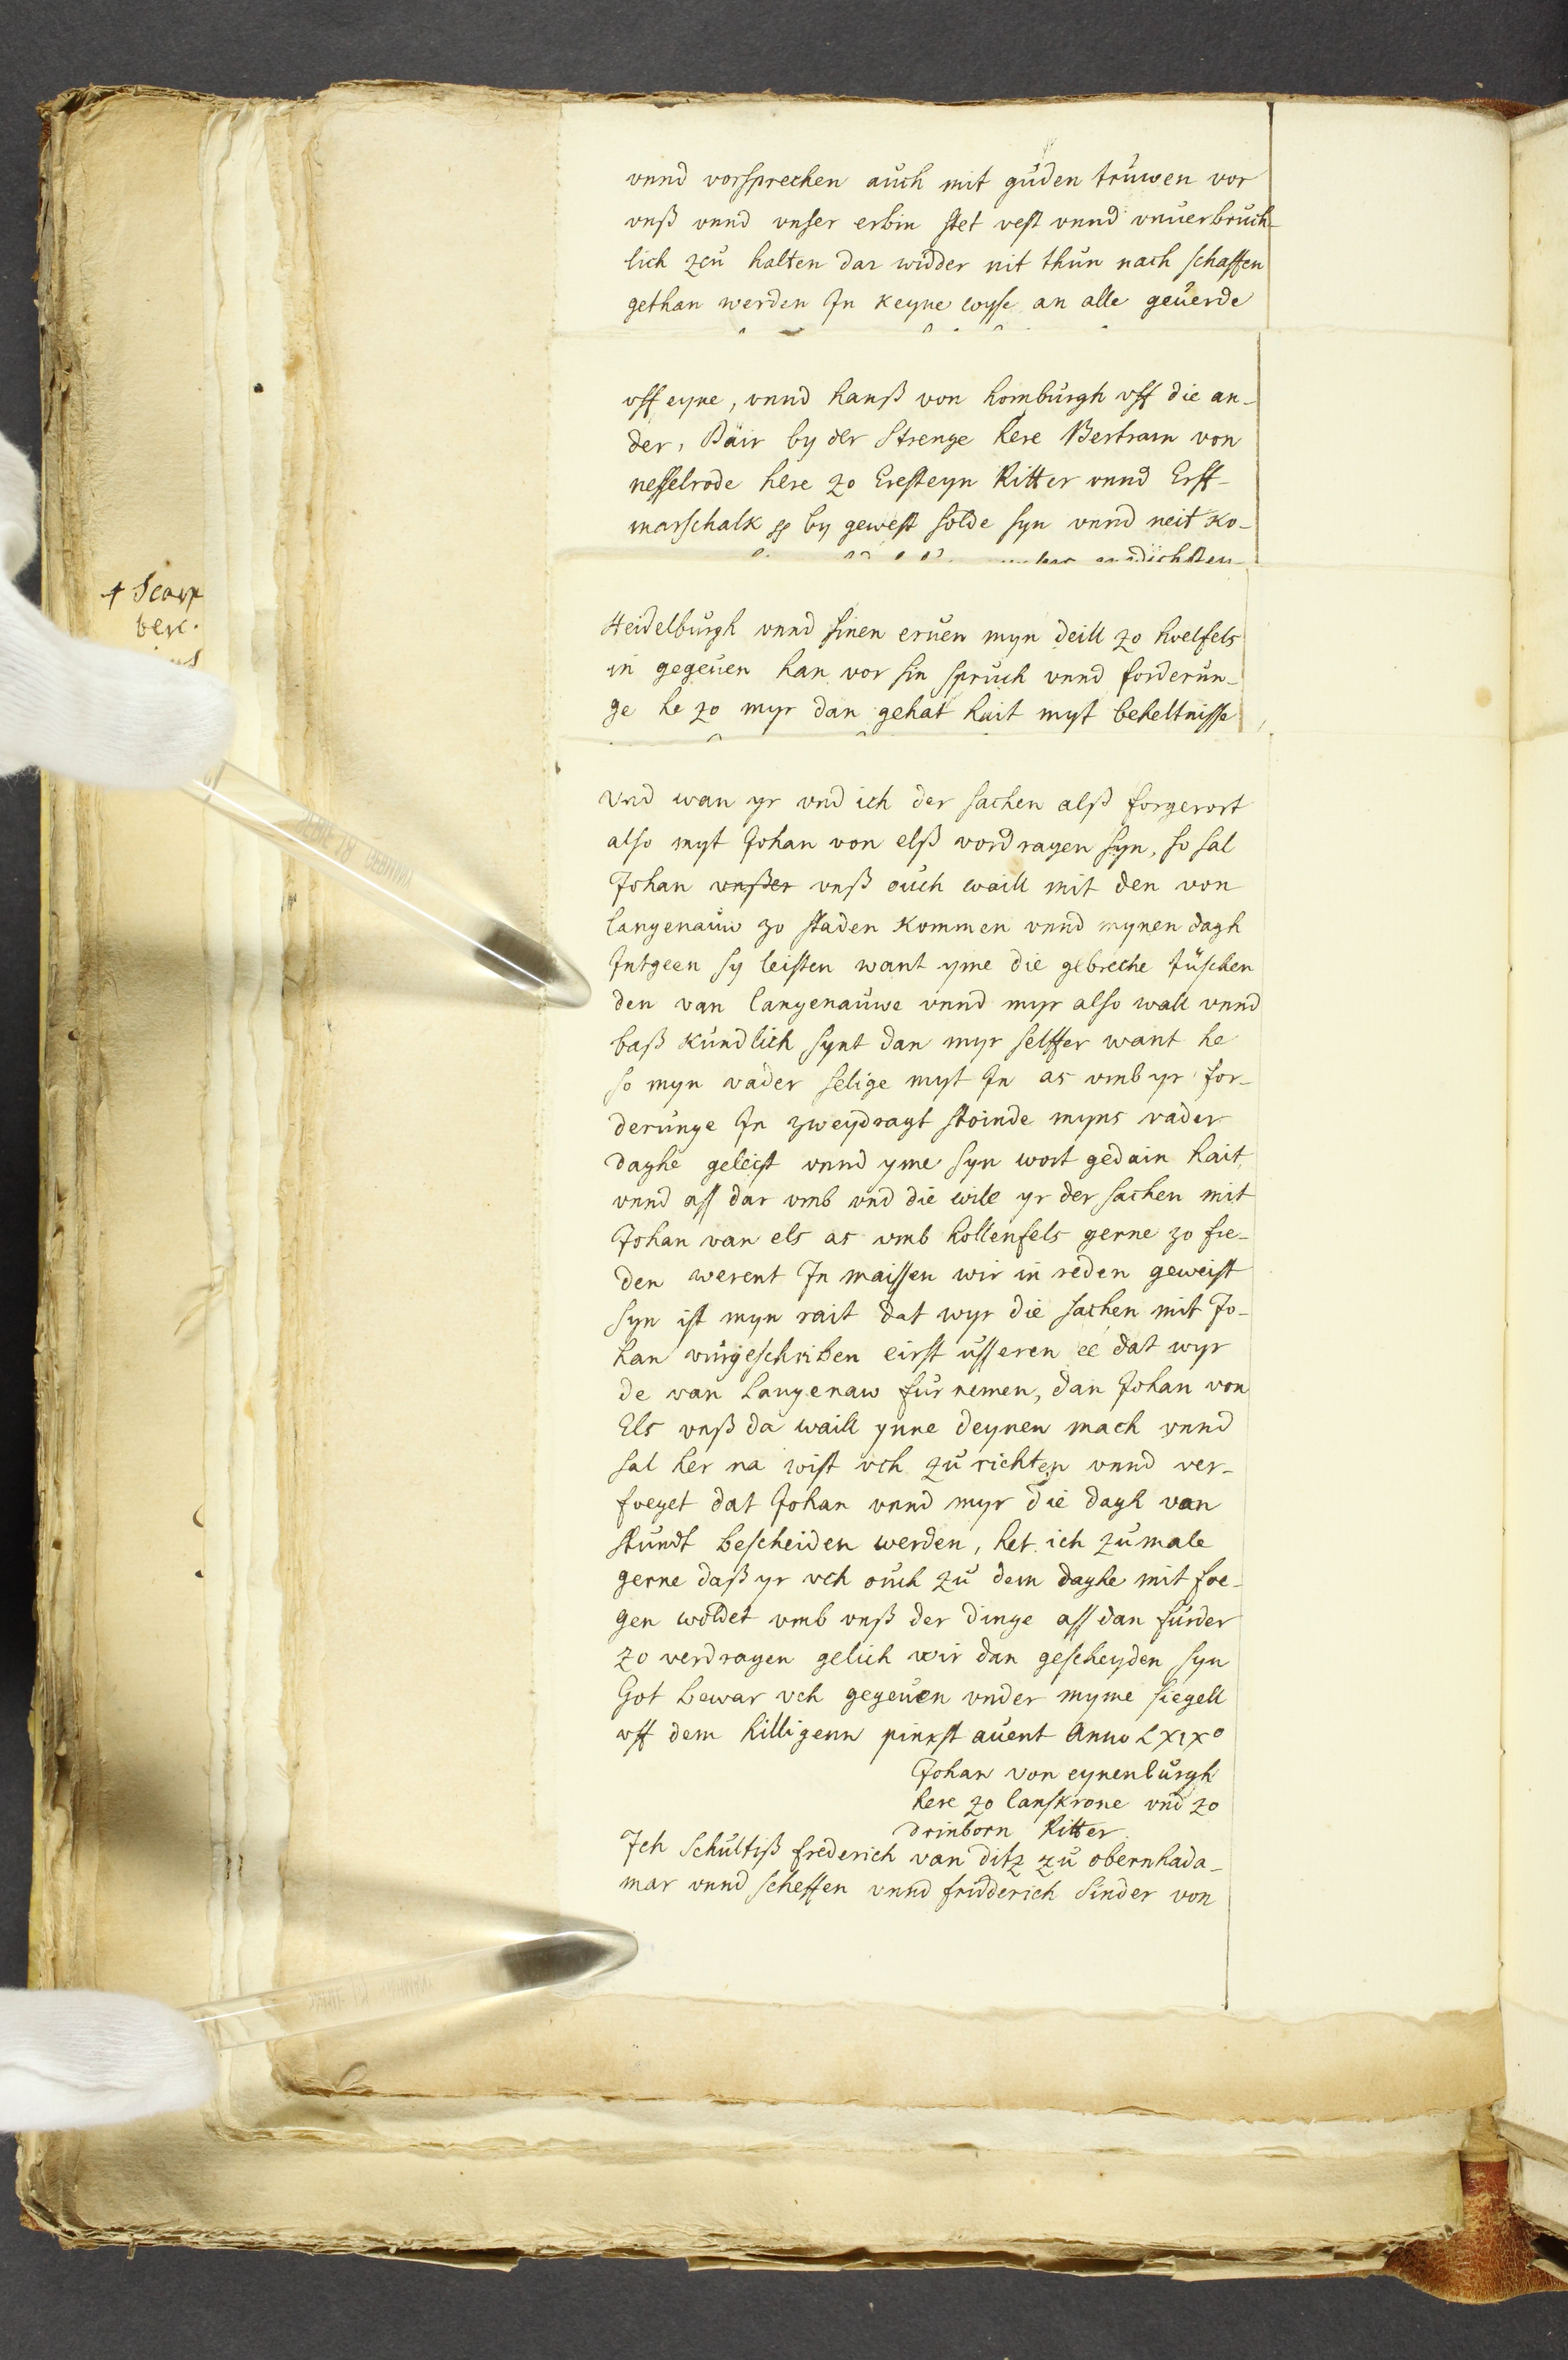 vnnd vorsprechen auch mit guden truwen vor
vnß vnnd vnser erbin stet vest vnnd vnuerbruch-
lich zcu halten dar widder nit thun nach schaffen
gethan werden In keyne wyse an alle geuerde
vff eyne, vnnd hanß von homburgh vff die an-
der, Däir by der Strenge here Bertram von
nesselrode here zo Eresteyn Ritter vnnd Erff-
marschalk by gewest solde syn vnnd neit ko-
Heidelburgh vnnd sinen eruen myn deill zo hoelfels
in gegeuen han vor sin spruch vnnd forderun-
ge he zo myr dan gehat hait myt beheltnisse
Vnd wan yr vnd ich der sachen alß forgerort
also myt Johan von elß vordragen syn, so sal
Johan vnßer vnß ouch waill mit den von
langenauw zo staden kommen vnnd mynen dagh
Intgeen sy leisten want yme die gebreche tüschen
den van langenauwe vnnd myr also wall vnnd
baß kundlich synt dan myr selffer want he
so myn vader selige myt In as vmb yr for-
derunge In zweydragt stoinde myns vader
daghe geleist vnnd yme syn wort gedain hait
vnnd aff dar vmb vnd die wile yr der sachen mit
Johan van els as vmb hollenfels gerne zo fre-
den werent In maissen wir in reden geweist
syn ist myn rait dat wyr die sachen mit Jo-
han vurgeschriben eirst usseren ee dat wyr
de van Langenaw fur nemen, dan Johan von
Els vnß da waill ynne deynen mach vnnd
sal her na wist vch zu richten vnnd ver-
foeget dat Johan vnnd myr die dagh van
stundt bescheiden werden, het ich zumale
gerne daß yr vch ouch zu dem daghe mit foe-
gen woldet vmb vnß der dinge aff dan furder
zo verdragen gelich wir dan gescheyden syn
Got bewar vch gegeuen vnder myme siegell
vff dem hilligenn pinxst auent Anno Lxixo
Johan von eynenburgh
here zo lanskrone vnd zo
drinborn Ritter
Ich Schultiß frederich van ditz zu obernhada-
mar vnnd scheffen vnnd fridderich Sinder von